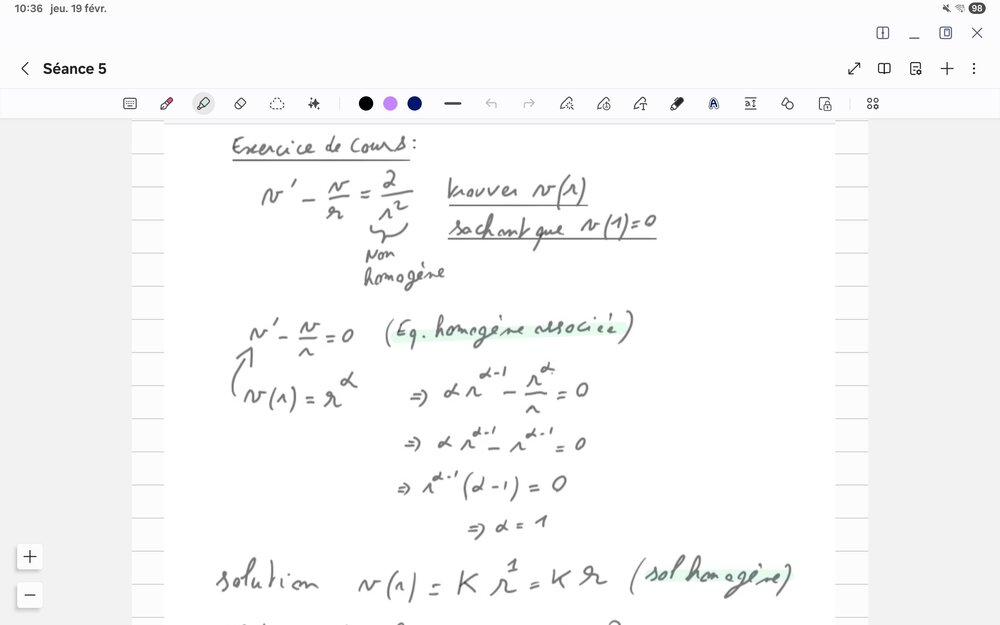 10:36 jeu. 19 févr.
98
Séance 5
Exercice de Cours :
v' - v/r = 2/r² trouver v(r)
sachant que v(1)=0
Non
homogène
v' - v/r = 0 (Eq. homogène associée)
v(r) = r^α ⇒ α r^(α-1) - r^α/r = 0
⇒ α r^(α-1) - r^(α-1) = 0
⇒ r^(α-1) (α-1) = 0
⇒ α = 1
solution v(r) = K r^1 = K r (sol homogène)